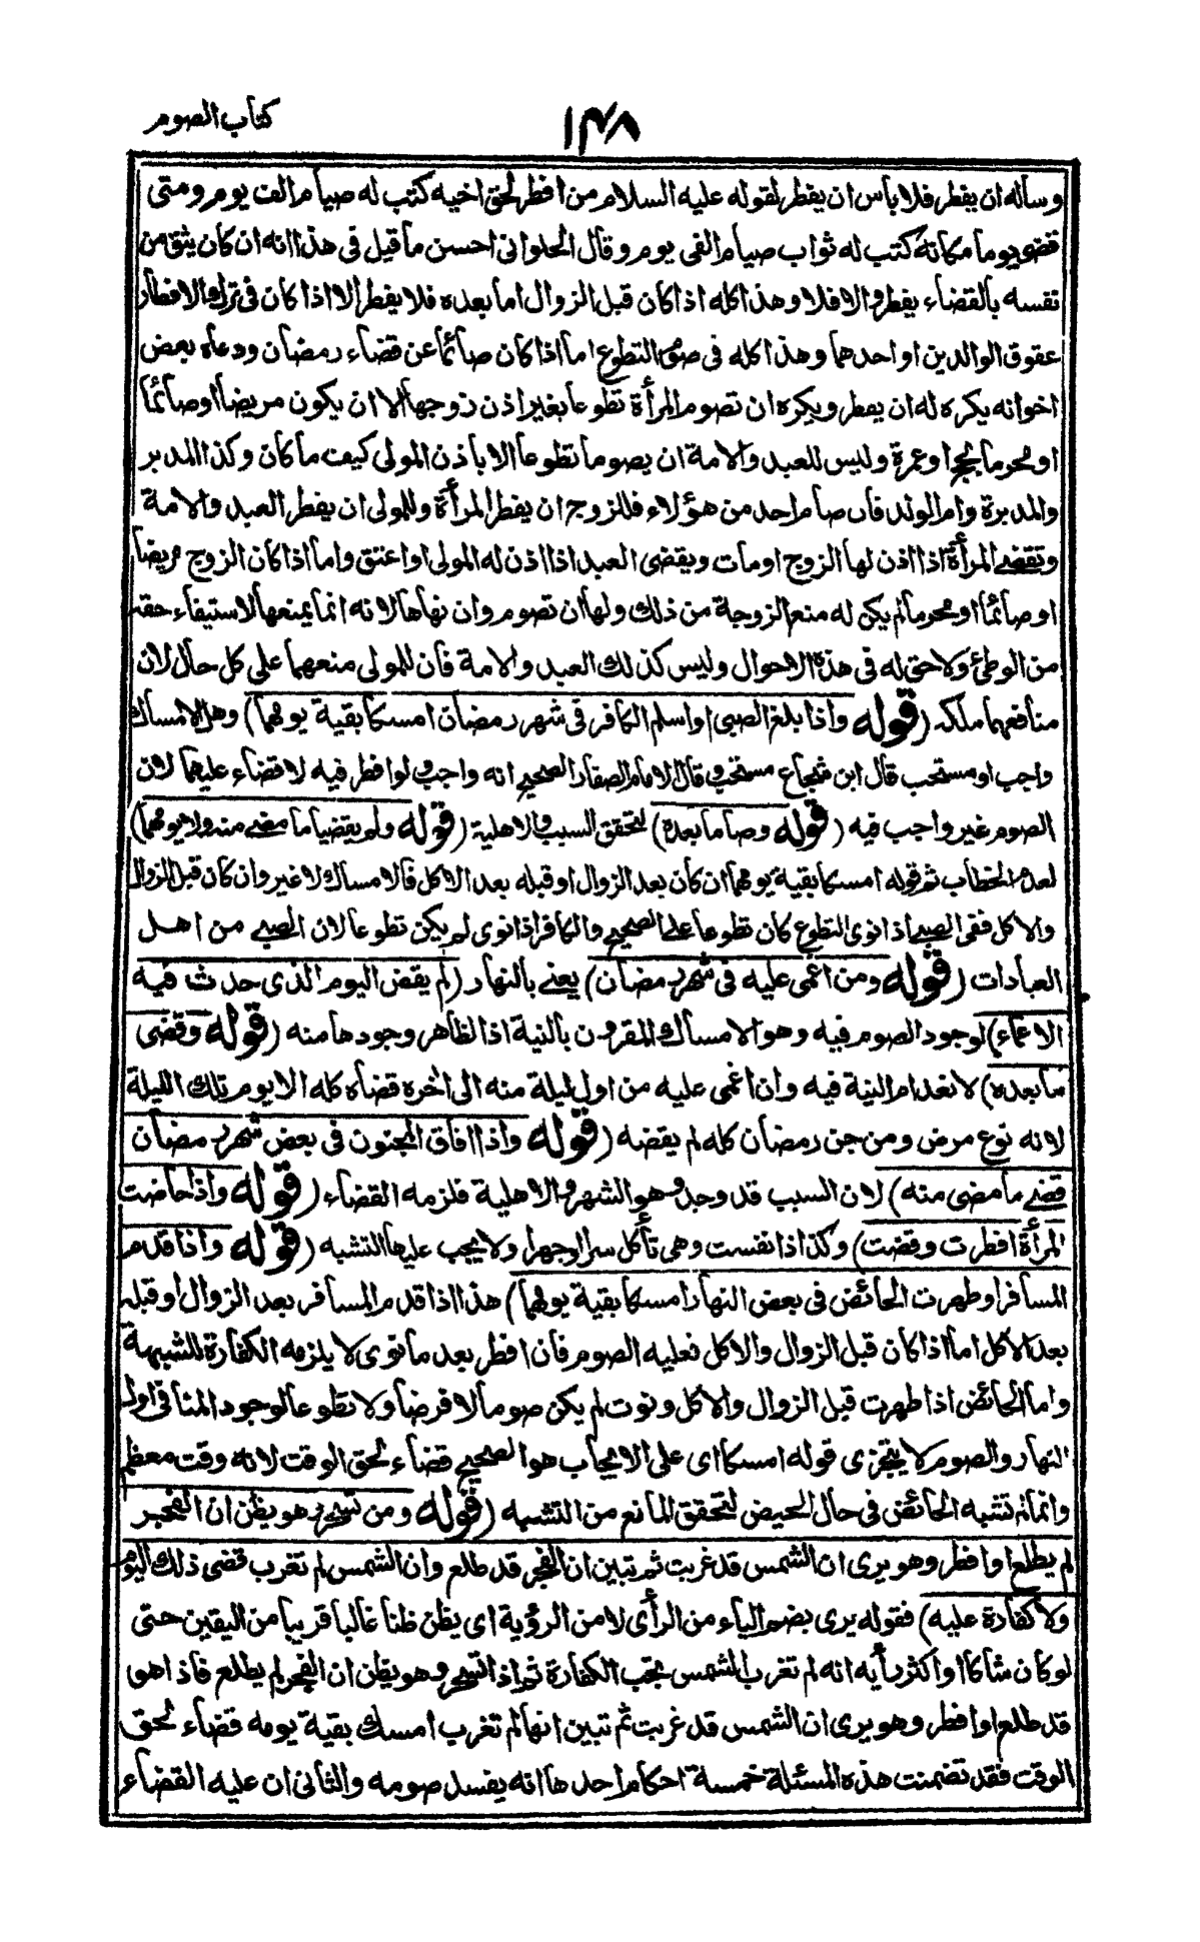 كتاب الصوم
١٤٨
وسأله ان يفطر فلا بأس ان يفطر لقوله عليه السلام من افطر لحق اخيه كتب له صيام الف يوم ومتى
قضى يوما مكانه كتب له ثواب صيام الفى يوم وقال الحلوانى احسن ما قيل فى هذا انه ان كان يثق من
نفسه بالقضاء يفطر والا فلا وهذا كله اذا كان قبل الزوال اما بعده فلا يفطر الا اذا كان فى ترك الافطار
عقوق الوالدين او احدهما وهذا كله فى صوم التطوع اما اذا كان صائما عن قضاء رمضان ودعاه بعض
اخوانه يكره له ان يفطر ويكره ان تصوم المرأة تطوعا بغير اذن زوجها الا ان يكون مريضا او صائما
او محرما بحج او عمرة وليس للعبد والامة ان يصوما تطوعا الا باذن المولى كيف ما كان وكذا المدبر
والمدبرة وام الولد فان صام احد من هؤلاء فللزوج ان يفطر المرأة وللمولى ان يفطر العبد والامة
وتقضى المرأة اذا اذن لها الزوج او مات ويقضى العبد اذا اذن له المولى او اعتق واما اذا كان الزوج مريضا
او صائما او محرما لم يكن له منع الزوجة من ذلك ولها ان تصوم وان نهاها لانه انما يمنعها لاستيفاء حقه
من الوطئ ولا حق له فى هذه الاحوال وليس كذلك العبد والامة فان للمولى منعهما على كل حال لان
منافعهما ملكه (قوله واذا بلغ الصبى او اسلم الكافر فى شهر رمضان امسكا بقية يومهما) وهل الامساك
واجب او مستحب قال ابن شجاع مستحب وقال الامام الصفار الصحيح انه واجب ولو افطر فيه لا قضاء عليهما لان
الصوم غير واجب فيه (قوله وصاما بعده) لتحقق السبب والاهلية (قوله ولم يقضيا ما مضى منه ولا يومهما)
لعدم الخطاب ثم قوله امسكا بقية يومهما ان كان بعد الزوال او قبله بعد الاكل فالامساك لا غير وان كان قبل الزوال
والاكل ففى الصبى اذا نوى التطوع كان تطوعا على الصحيح والكافر اذا نوى لم يكن تطوعا لان الصبى من اهل
العبادات (قوله ومن اغمى عليه فى شهر رمضان) يعنى بالنهار (لم يقض اليوم الذى حدث فيه
الاغماء) لوجود الصوم فيه وهو الامساك المقرون بالنية اذا الظاهر وجودها منه (قوله وقضى
ما بعده) لانعدام النية فيه وان اغمى عليه من اول ليلة منه الى اخره قضاه كله الا يوم تلك الليلة
لانه نوع مرض ومن جن رمضان كله لم يقضه (قوله واذا افاق المجنون فى بعض شهر رمضان
قضى ما مضى منه) لان السبب قد وجد وهو الشهر والاهلية فلزمه القضاء (قوله واذا حاضت
المرأة افطرت وقضت) وكذا اذا نفست وهى تأكل سرا لا جهرا ولا يجب عليها التشبه (قوله واذا قدم
المسافر او طهرت الحائض فى بعض النهار امسكا بقية يومهما) هذا اذا قدم المسافر بعد الزوال او قبله
بعد الاكل اما اذا كان قبل الزوال والاكل فعليه الصوم فان افطر بعد ما نوى لا يلزمه الكفارة للشبهة
واما الحائض اذا طهرت قبل الزوال والاكل ونوت لم يكن صوما لا فرضا ولا تطوعا لوجود المنافى اول
النهار والصوم لا يتجزى قوله امسكا اى على الايجاب هو الصحيح قضاء لحق الوقت لانه وقت معظم
وانما لم تتشبه الحائض فى حال الحيض لتحقق المانع من التشبه (قوله ومن تسحر وهو يظن ان الفجر
لم يطلع او افطر وهو يرى ان الشمس قد غربت ثم تبين ان الفجر قد طلع وان الشمس لم تغرب قضى ذلك اليوم
ولا كفارة عليه) فقوله يرى بضم الياء من الرأى لا من الرؤية اى يظن ظنا غالبا قريبا من اليقين حتى
لو كان شاكا او اكثر رأيه انه لم تغرب الشمس يجب الكفارة ثم اذا تسحر وهو يظن ان الفجر لم يطلع فاذا هو
قد طلع او افطر وهو يرى ان الشمس قد غربت ثم تبين انها لم تغرب امسك بقية يومه قضاء لحق
الوقت فقد تضمنت هذه المسئلة خمسة احكام احدها انه يفسد صومه والثانى ان عليه القضاء